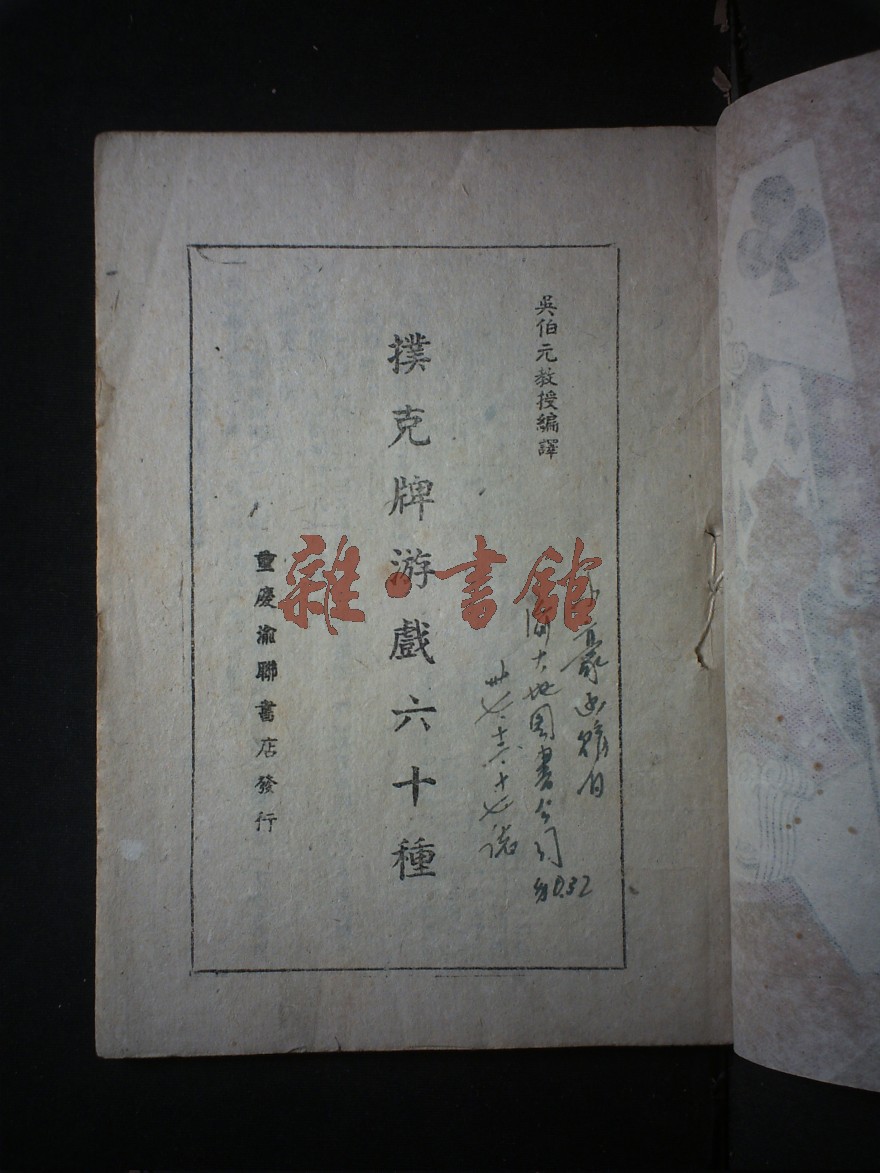 吳伯元教授編譯
撲克牌游戲六十種
重慶渝聯書店發行
雜·書館
大地图書公司
卅七、十六、十七
0.32